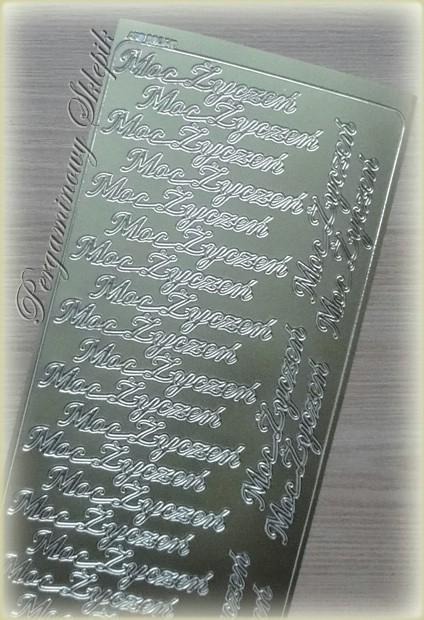 Pergaminowy Sklepik
Moc Życzeń
Moc Życzeń
Moc Życzeń
Moc Życzeń
Moc Życzeń
Moc Życzeń
Moc Życzeń
Moc Życzeń
Moc Życzeń
Moc Życzeń
Moc Życzeń
Moc Życzeń
Moc Życzeń
Moc Życzeń
Moc Życzeń
Moc Życzeń
Moc Życzeń
Moc Życzeń
Moc Życzeń
Moc Życzeń
Moc Życzeń